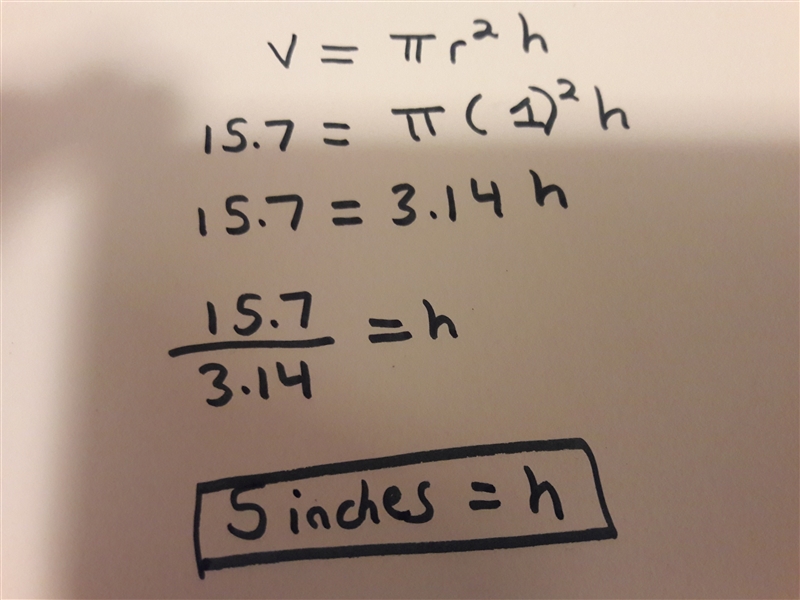 V = πr²h
15.7 = π(1)²h
15.7 = 3.14 h
15.7
3.14
= h
5 inches = h